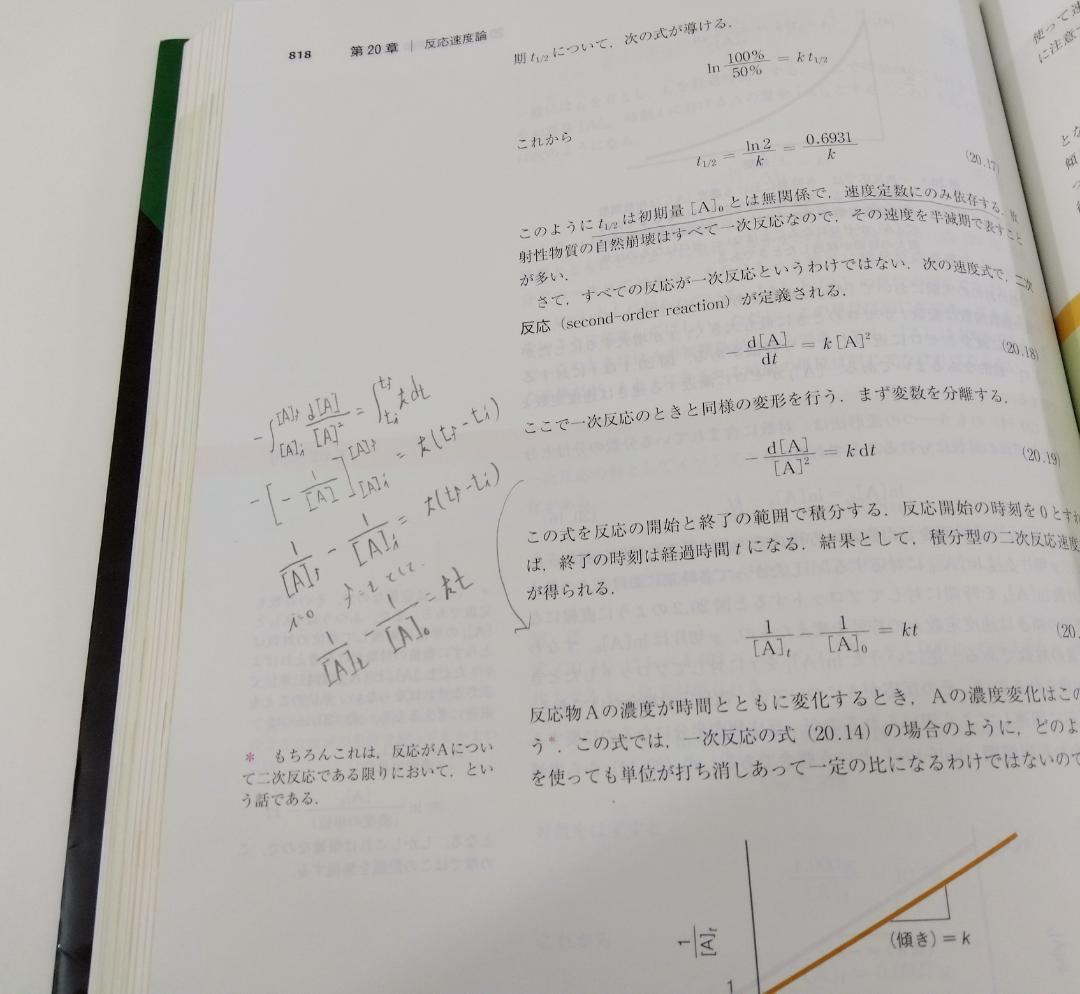 818 第20章 | 反応速度論
期 t1/2 について，次の式が導ける．
ln 100%/50% = k t1/2
これから
t1/2 = ln 2/k = 0.6931/k (20.17)
このように t1/2 は初期量 [A]0 とは無関係で，速度定数にのみ依存する．放
射性物質の自然崩壊はすべて一次反応なので，その速度を半減期で表すこと
が多い．
さて，すべての反応が一次反応というわけではない．次の速度式で，二次
反応（second-order reaction）が定義される．
− d[A]/dt = k [A]² (20.18)
ここで一次反応のときと同様の変形を行う．まず変数を分離する．
− d[A]/[A]² = k dt (20.19)
この式を反応の開始と終了の範囲で積分する．反応開始の時刻を0とすれ
ば，終了の時刻は経過時間 t になる．結果として，積分型の二次反応速度
が得られる．
1/[A]t − 1/[A]0 = kt (20.
反応物Aの濃度が時間とともに変化するとき，Aの濃度変化はこの
う*．この式では，一次反応の式（20.14）の場合のように，どのよ
を使っても単位が打ち消しあって一定の比になるわけではないので
−∫[A]i[A]f d[A]/[A]² = ∫titf k dt
−[−1/[A]][A]i[A]f = k(tf−ti)
1/[A]f − 1/[A]i = k(tf−ti)
i=0 f=t として．
1/[A]t − 1/[A]0 = kt
* もちろんこれは，反応がAについ
て二次反応である限りにおいて，とい
う話である．
1/[A]t
（傾き）= k
1
使って速
に注意
とな
傾